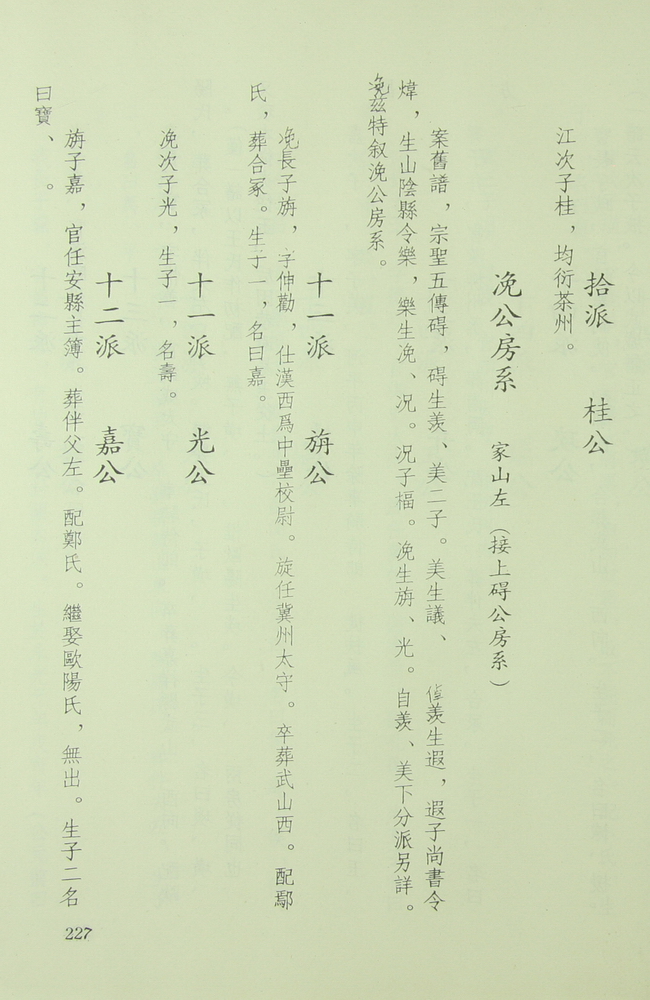 拾派　桂公
江次子桂，均衍茶州。
浼公房系　家山左（接上碍公房系）
案舊譜，宗聖五傳碍，碍生羨、美二子。美生議、　值羨生遐，遐子尚書令
煒，生山陰縣令樂，樂生浼、況。況子楅。浼生旃、光。自羨、美下分派另詳。
逸兹特叙浼公房系。
十一派　旃公
浼長子旃，字伸勸，仕漢西爲中壘校尉。旋任冀州太守。卒葬武山西。配鄢
氏，葬合冢。生子一，名曰嘉。
十一派　光公
浼次子光，生子一，名壽。
十二派　嘉公
旃子嘉，官任安縣主簿。葬伴父左。配鄭氏。繼娶歐陽氏，無出。生子二名
曰寶、　。
227